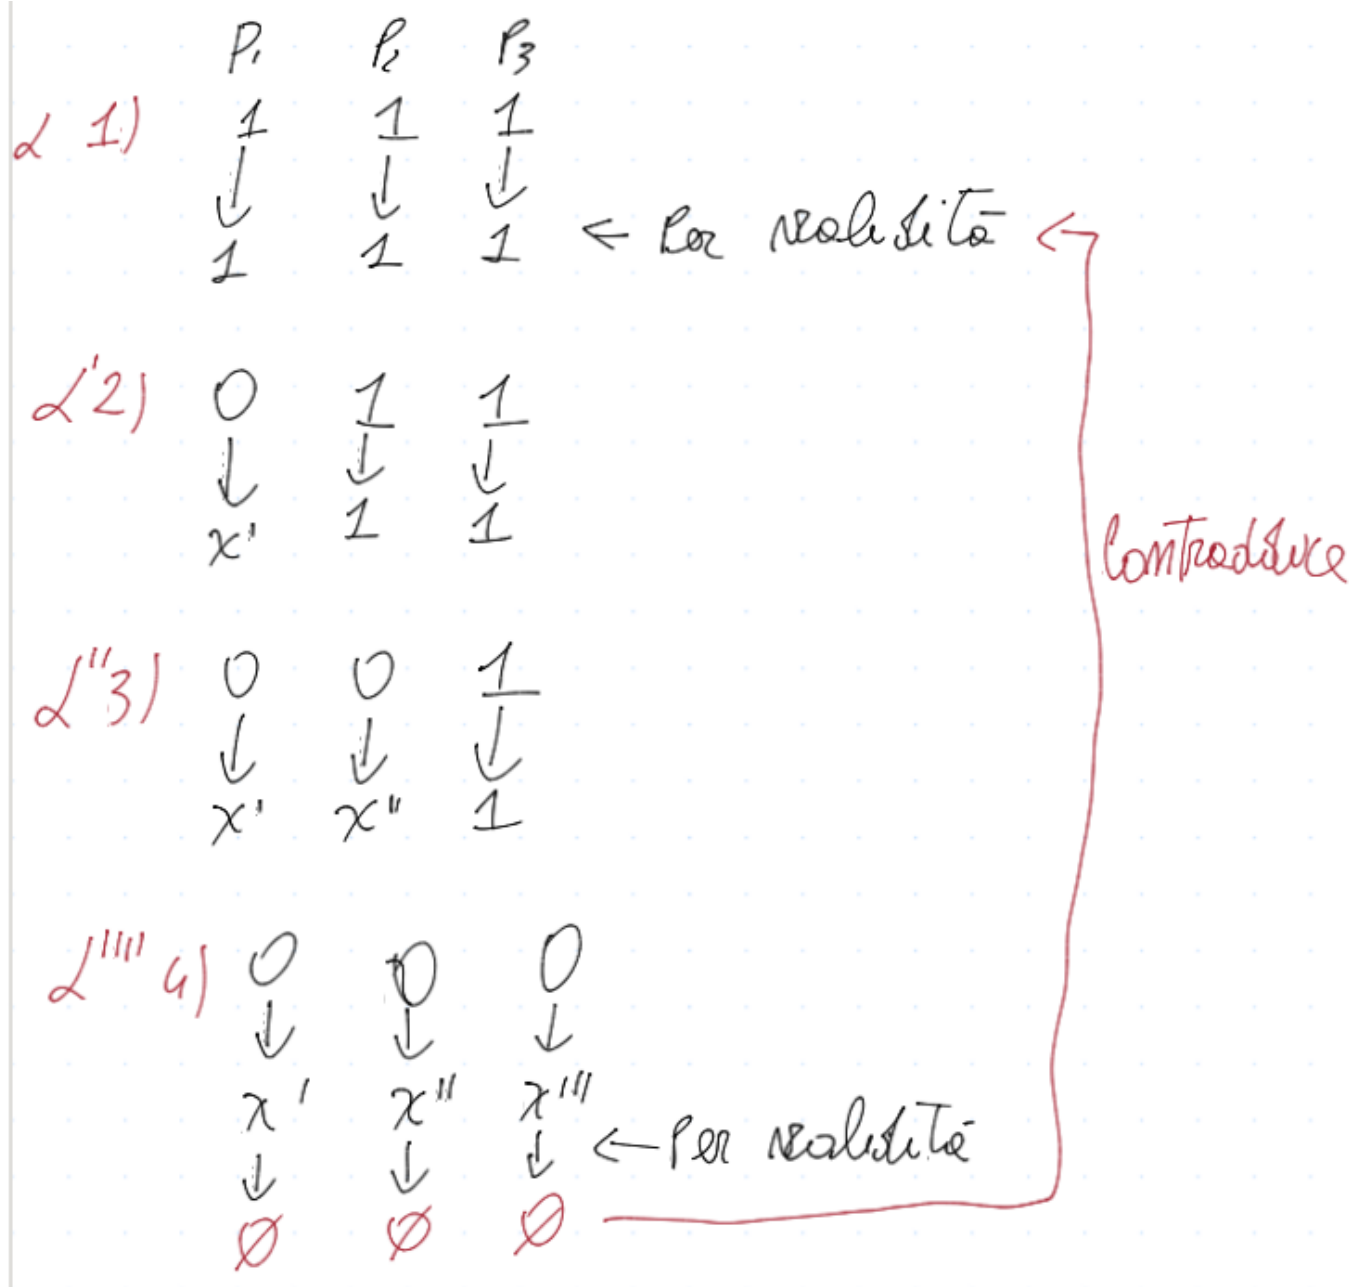 P₁ P₂ P₃
α 1) 1 1 1
↓ ↓ ↓
1 1 1 ← Per validità ←
α' 2) 0 1 1
↓ ↓ ↓
x' 1 1
Contraddice
α'' 3) 0 0 1
↓ ↓ ↓
x' x'' 1
α'''' 4) 0 0 0
↓ ↓ ↓
x' x'' x'''
↓ ↓ ↓ ← Per validità
Ø Ø Ø